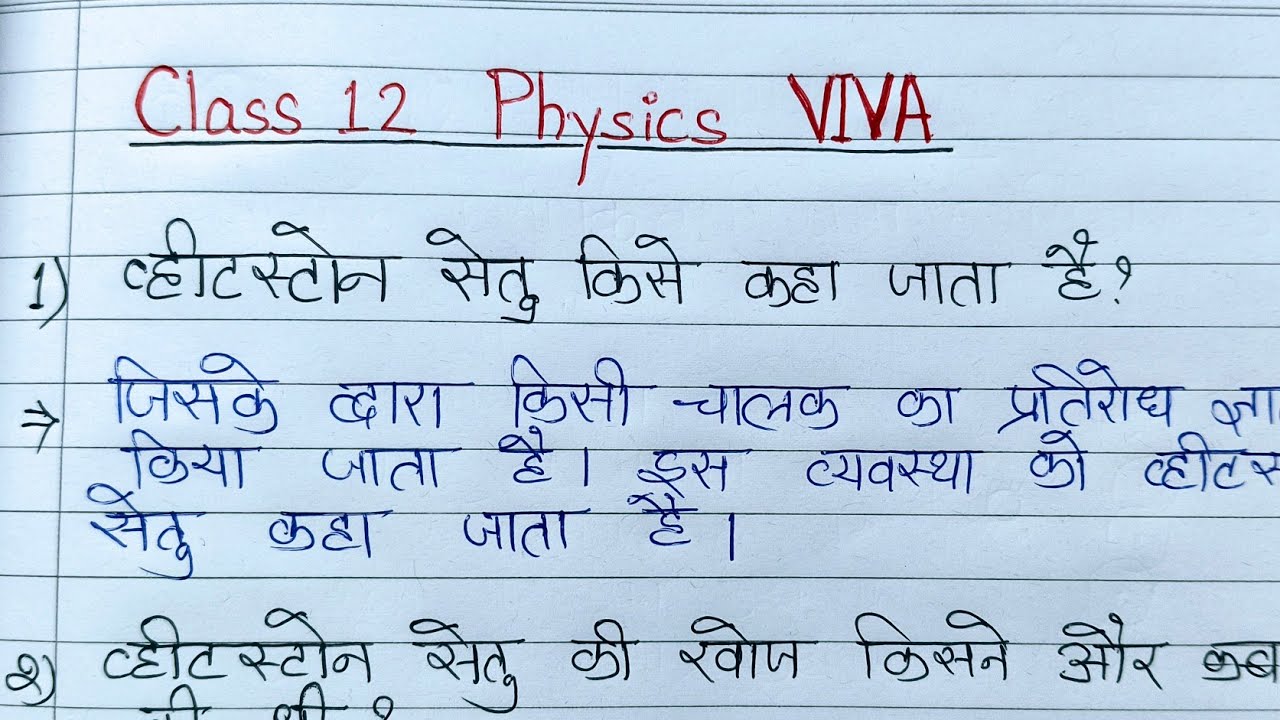 Class 12 Physics VIVA
1) व्हीटस्टोन सेतु किसे कहा जाता है?
⇒ जिसके द्वारा किसी चालक का प्रतिरोध ज्ञा
किया जाता है। इस व्यवस्था को व्हीटस
सेतु कहा जाता है।
२) व्हीटस्टोन सेतु की खोज किसने और कब
की थी?